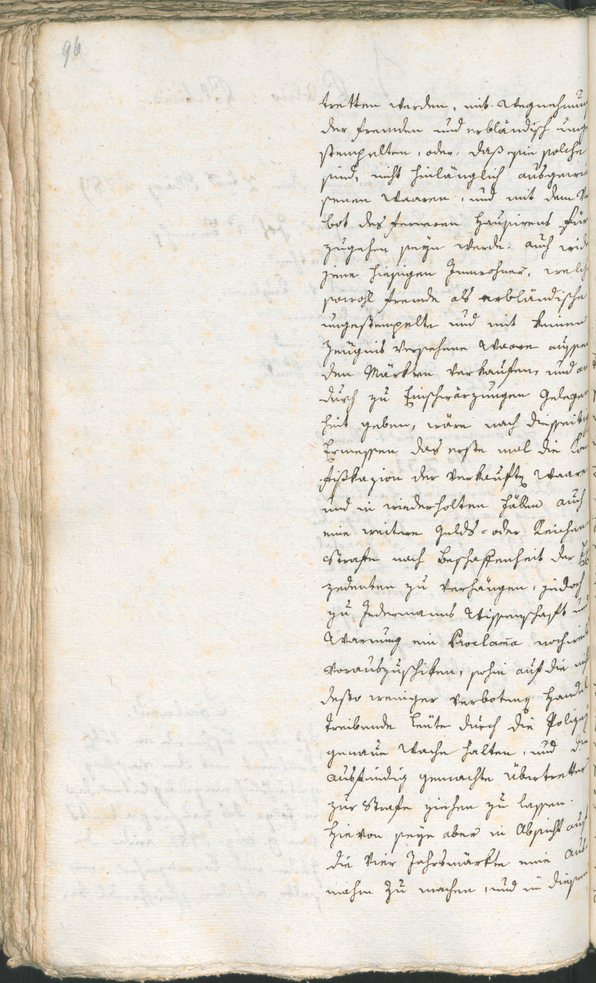 96
tretten werden, mit Wegnehmung
der fremden und erbländisch unge
stempelten, oder, daß sie solche
sind, nicht hinlänglich ausgewie
senen Waaren, und mit dem Ver
bot des ferneren Hausirens für
zugehen seyn werde. auch wid
jene hiesigen Innwohner, welch
sowohl fremde als erbländische
ungestempelte und mit keinem
Zeugnis versehene Waare ausser
den Märkten verkaufen, und
durch zu Einschwärzungen Gelegen
heit geben, wäre nach diesseitig
Ermessen das erste mal die Kon
fiskazion der verkauften Waare
und in wiederholten Fällen auch
eine weitere Gelds- oder Leibes
Strafe nach Beschaffenheit der
zedenten zu verhängen, jedoch
zu Jedermanns Wissenschaft und
Warnung ein Proclama
vorauszuschiken, sohin auf die
desto weniger verbotenen Handel
treibende Leute durch die Polizey
genaue Wache halten, und die
ausfündig gemachte Übertretter
zur Strafe ziehen zu lassen.
Hievon seye aber in Absicht auf
die vier Jahrsmärkte eine Aus
nahm zu machen, und in diesen